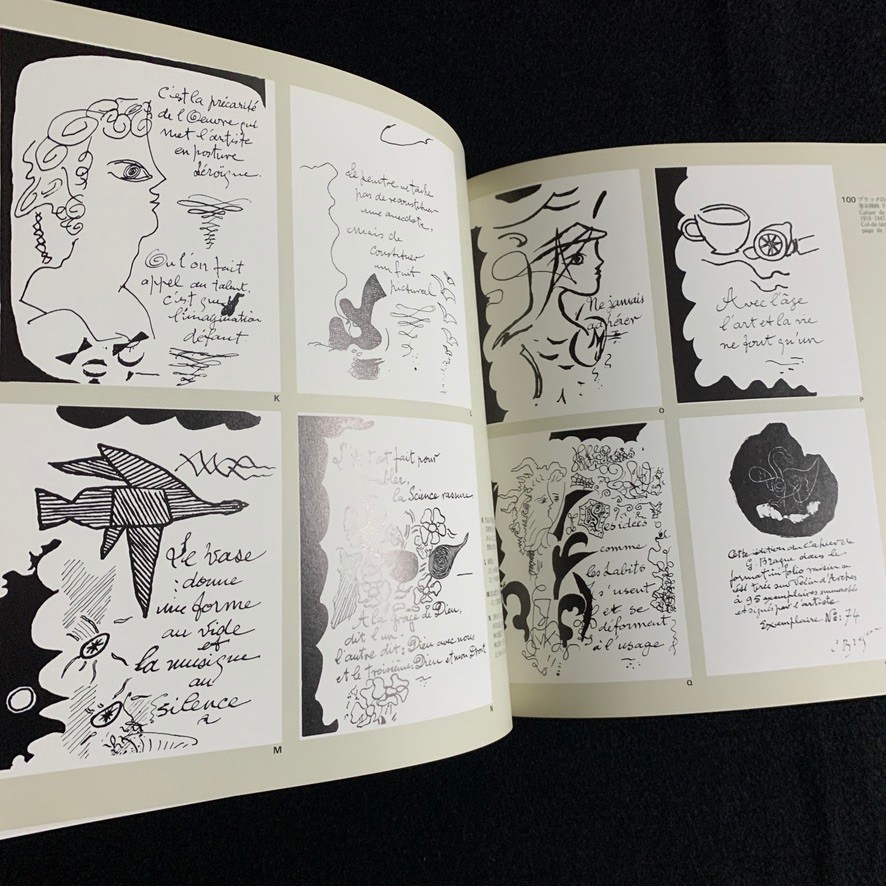 C'est la précarité
de l'Oeuvre qui
met l'artiste
en posture
héroïque.
Qu'l'on fait
appel au talent.
c'est que
l'imagination
défaut
K
Le peintre ne tâche
pas de reconstituer
une anecdote,
mais de
constituer
un fait
pictural
L
Le vase
donne
une forme
au vide
et
la musique
au
silence
M
L'Art est fait pour
la Science rassure
A la grace de Dieu,
dit l'un.
l'autre dit: Dieu avec nous
et le troisième: Dieu et mon Droit
N
Ne jamais
adhérer
O
Avec l'âge
l'art et la vie
ne font qu'un
P
Les idées
comme
les habits
s'usent
et se
déforment
à l'usage
Q
Cette édition du Cahier de
G. Braque dans le
format in folio raisin a
été tirée sur Vélin d'Arches
à 95 exemplaires numérotés
et signés par l'artiste
Exemplaire No: 74
G Braque
100
Cahier de
page de